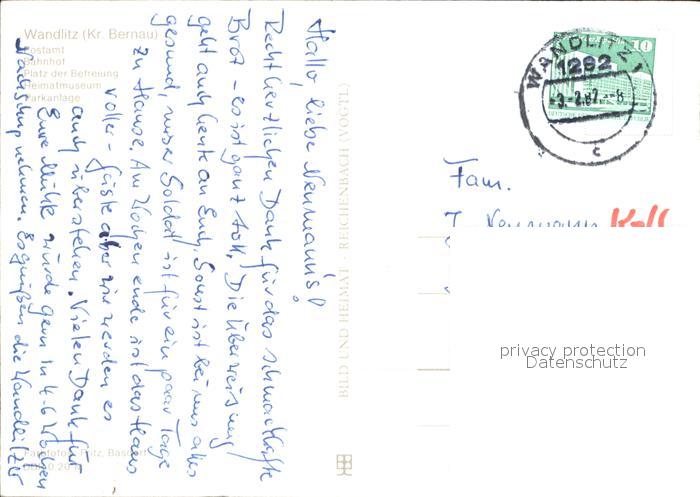 Wandlitz (Kr. Bernau)
Postamt
Bahnhof
Platz der Befreiung
Heimatmuseum
Parkanlage
Hallo, liebe Neumann's!
Recht herzlichen Dank für das schmackhafte
Brot - es ist ganz toll. Die Überweisung
geht auch heute an Euch. Sonst ist bei uns alles
gesund, unser Soldat ist für ein paar Tage
zu Hause. Am Wochenende ist das Haus
voller Gäste aber wir werden es
auch überstehen. Vielen Dank für
Eure Mühe würde gern in 4-6 Wochen
Nachschub nehmen. Es grüßen die Wandlitzer
BILD UND HEIMAT · REICHENBACH (VOGTL)
10
WANDLITZ 1
1292
c
Fam.
Neumann
privacy protection
Datenschutz